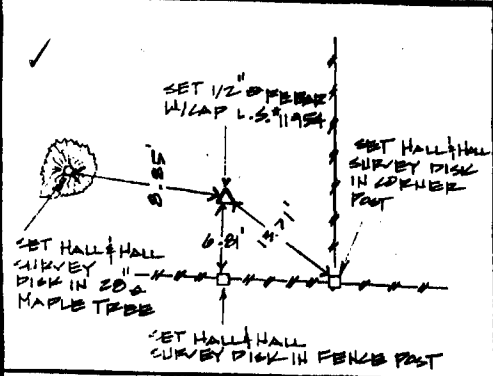 SET 1/2" Ø REBAR
W/CAP L.S.#11954
SET HALL & HALL
SURVEY DISK
IN CORNER
POST
8.85'
6.81'
15.71'
SET HALL & HALL
SURVEY
DISK IN 28" Ø
MAPLE TREE
SET HALL & HALL
SURVEY DISK IN FENCE POST